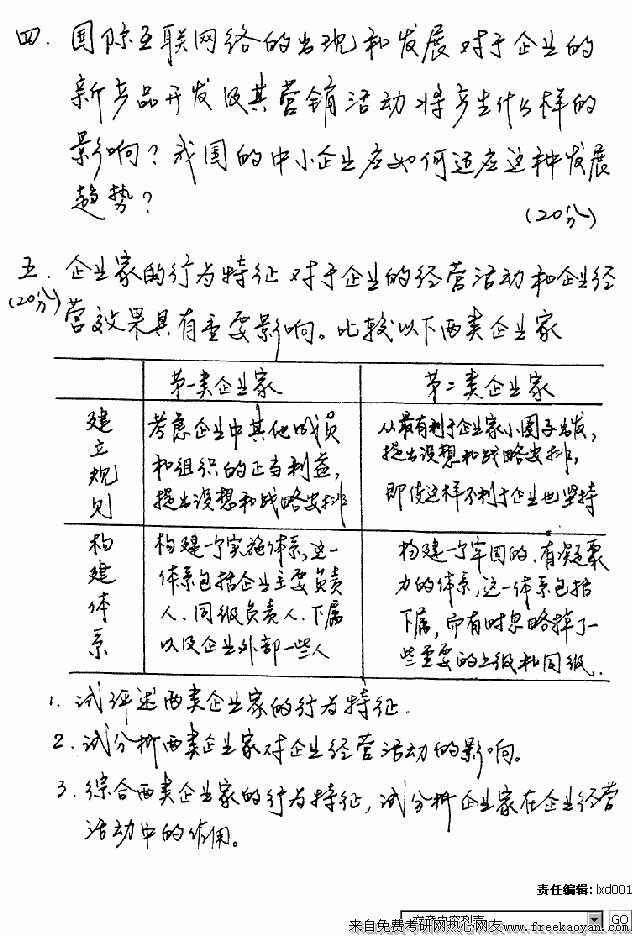 四. 国际互联网络的出现和发展对于企业的
新产品开发及其营销活动将产生什么样的
影响？我国的中小企业应如何适应这种发展
趋势？
(20分)
五. 企业家的行为特征对于企业的经营活动和企业经
(20分)
营效果具有重要影响。比较以下两类企业家
第一类企业家 第二类企业家
建立规则
考虑企业中其他成员
和组织的正当利益,
提出设想和战略安排
从最有利于企业家小圈子出发,
提出设想和战略安排,
即使这样不利于企业也坚持
构建体系
构建一个实施体系,这一
体系包括企业主要负责
人、同级负责人、下属
以及企业外部一些人
构建一个牢固的、有凝聚
力的体系,这一体系包括
下属,而有时忽略掉了一
些重要的上级和同级.
1. 试评述两类企业家的行为特征.
2. 试分析两类企业家对企业经营活动的影响。
3. 综合两类企业家的行为特征,试分析企业家在企业经营
活动中的作用。
责任编辑: lxd001
GO
来自免费考研网热心网友 www.freekaoyan.com